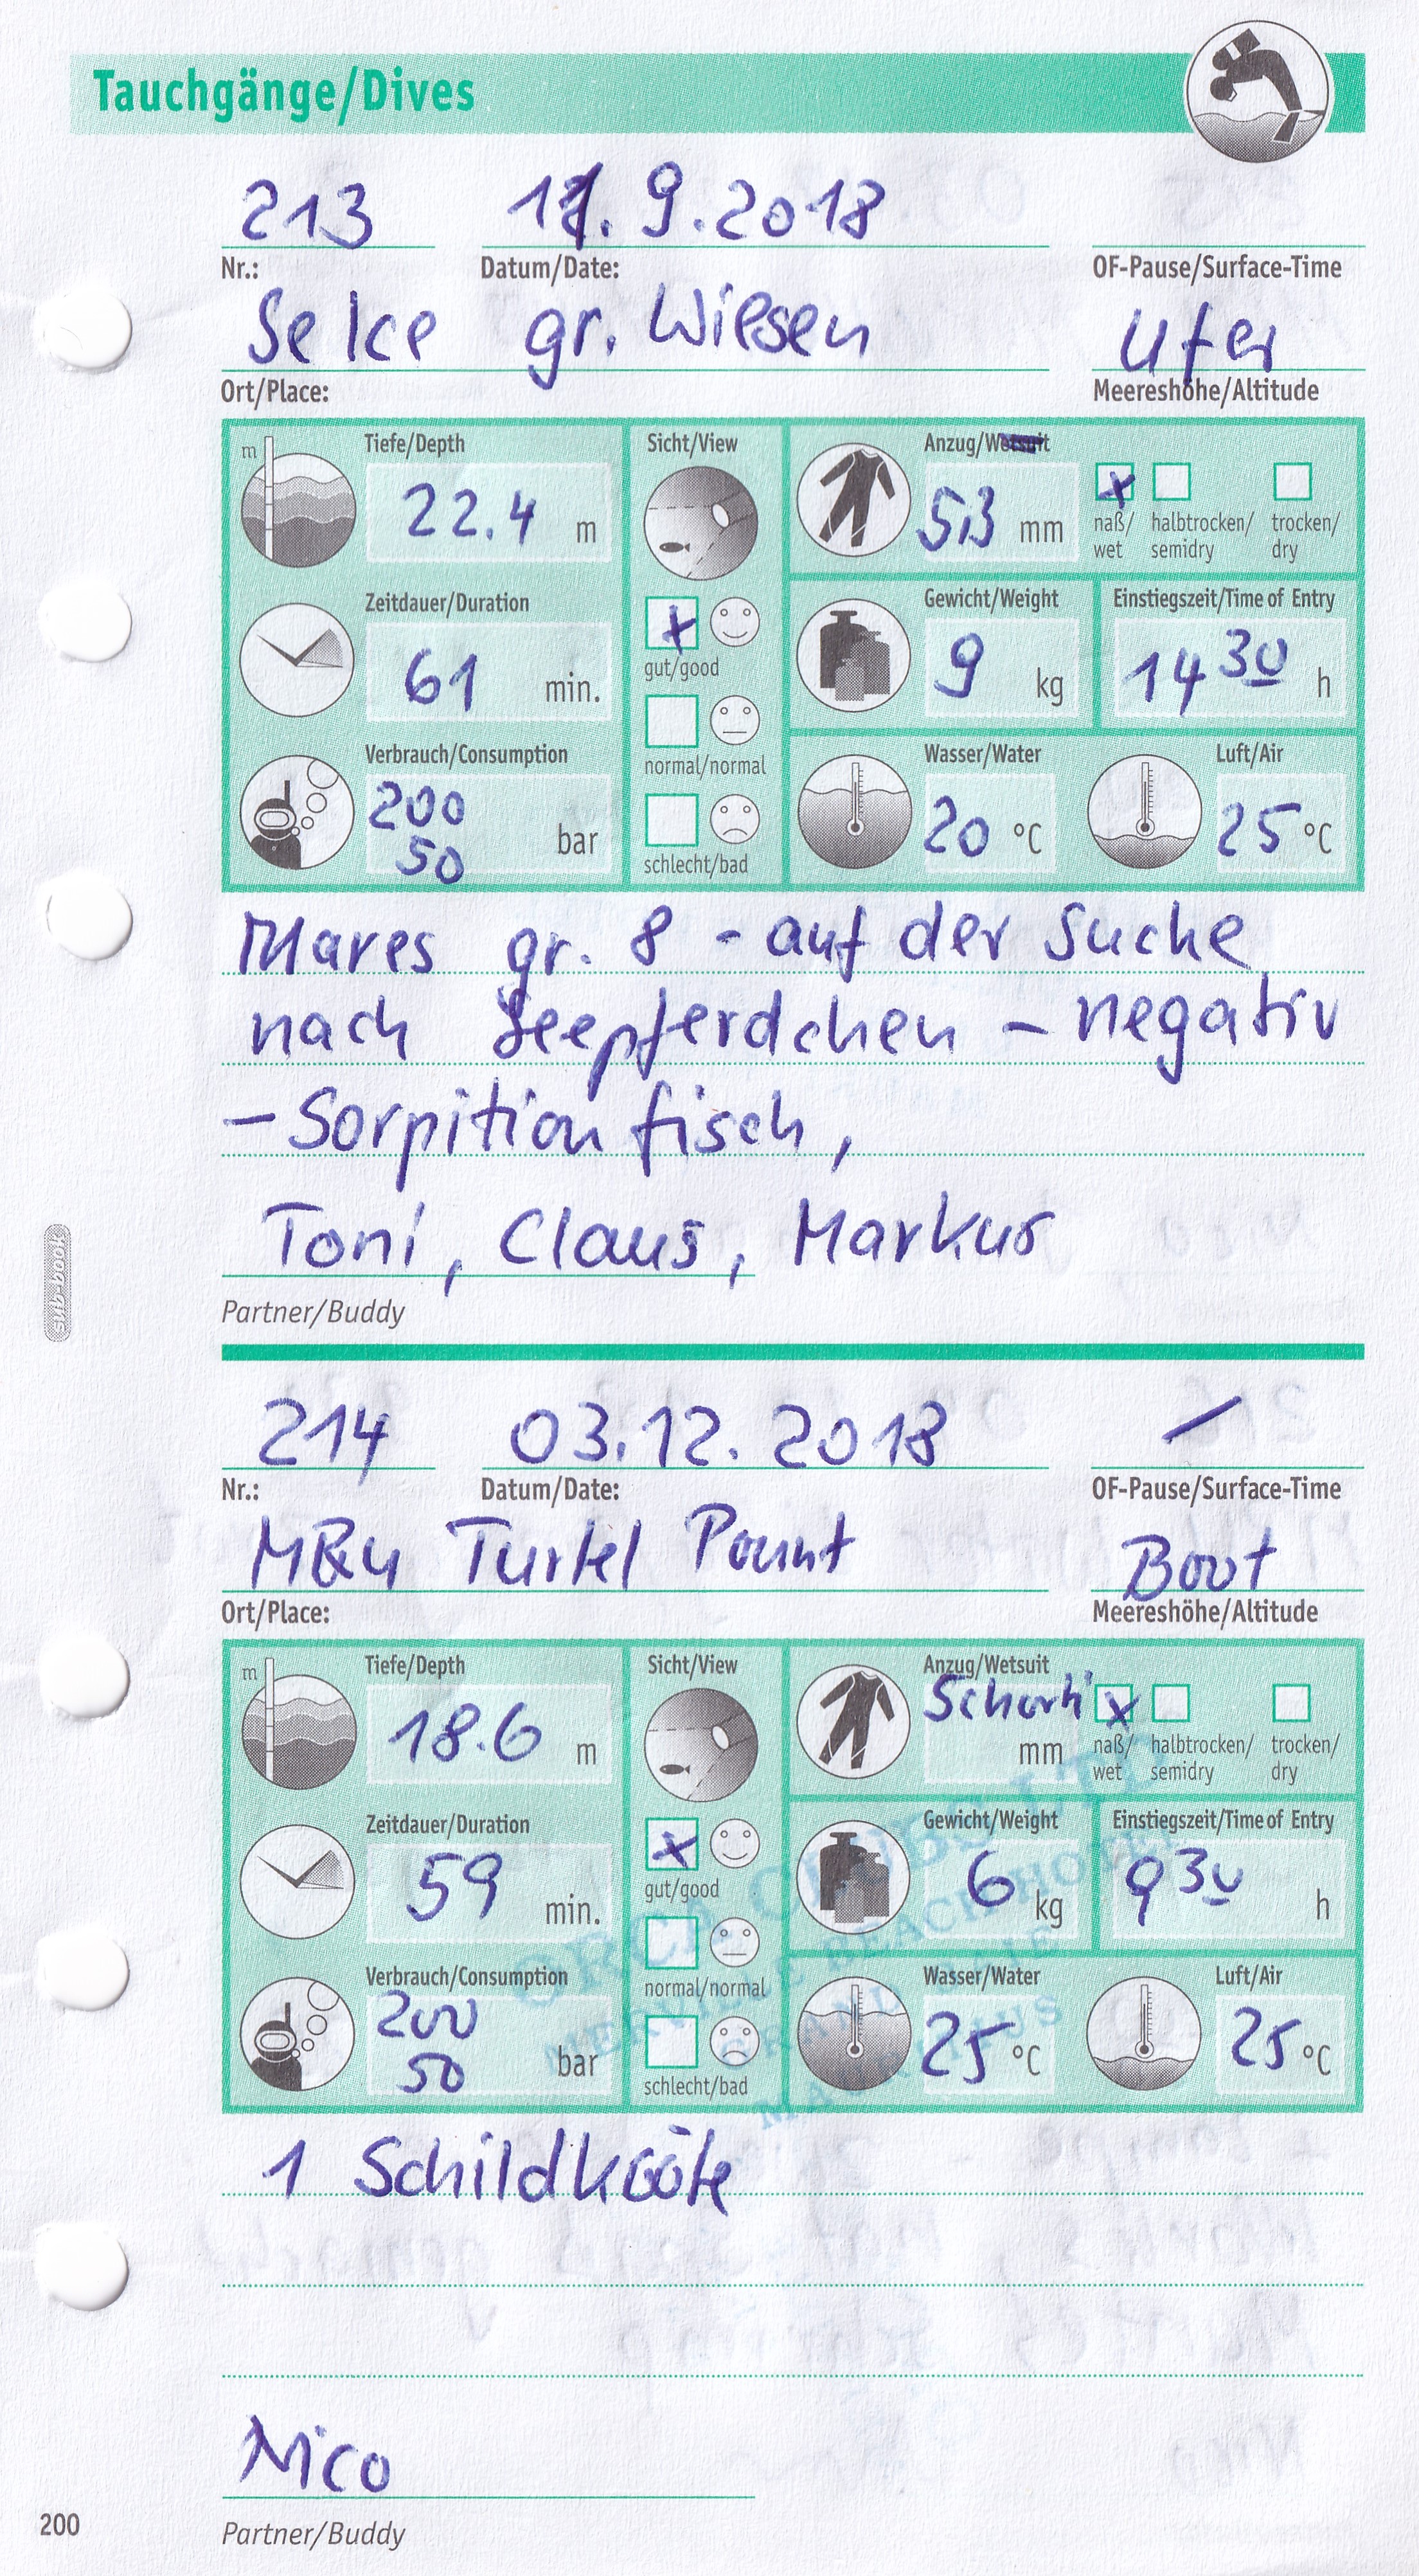 Tauchgänge/Dives
213 11.9.2018
Nr.: Datum/Date: OF-Pause/Surface-Time
Selce gr. Wiesen Ufer
Ort/Place: Meereshöhe/Altitude
m Tiefe/Depth Sicht/View Anzug/Wetsuit
22.4 m 5 mm X naß/wet halbtrocken/semidry trocken/dry
Zeitdauer/Duration Gewicht/Weight Einstiegszeit/Time of Entry
61 min. X gut/good 9 kg 14 30 h
normal/normal
Verbrauch/Consumption Wasser/Water Luft/Air
200
50 bar 20 °C 25 °C
schlecht/bad
Mares gr. 8 - auf der Suche
nach Seepferdchen - negativ
- Sorpitionfisch,
Toni, Claus, Markus
Partner/Buddy
sub-book
214 03.12.2018 /
Nr.: Datum/Date: OF-Pause/Surface-Time
Turtel Pount Boot
Ort/Place: Meereshöhe/Altitude
m Tiefe/Depth Sicht/View Anzug/Wetsuit
18.6 m Schorti mm X naß/wet halbtrocken/semidry trocken/dry
Zeitdauer/Duration Gewicht/Weight Einstiegszeit/Time of Entry
59 min. X gut/good 6 kg 9 30 h
normal/normal
Verbrauch/Consumption Wasser/Water Luft/Air
200
50 bar 25 °C 25 °C
schlecht/bad
ORCA CLUBS LTD
MERVILLE BEACH HOTEL
GRAND BAIE
MAURITIUS
1 Schildkröte
Nico
Partner/Buddy
200